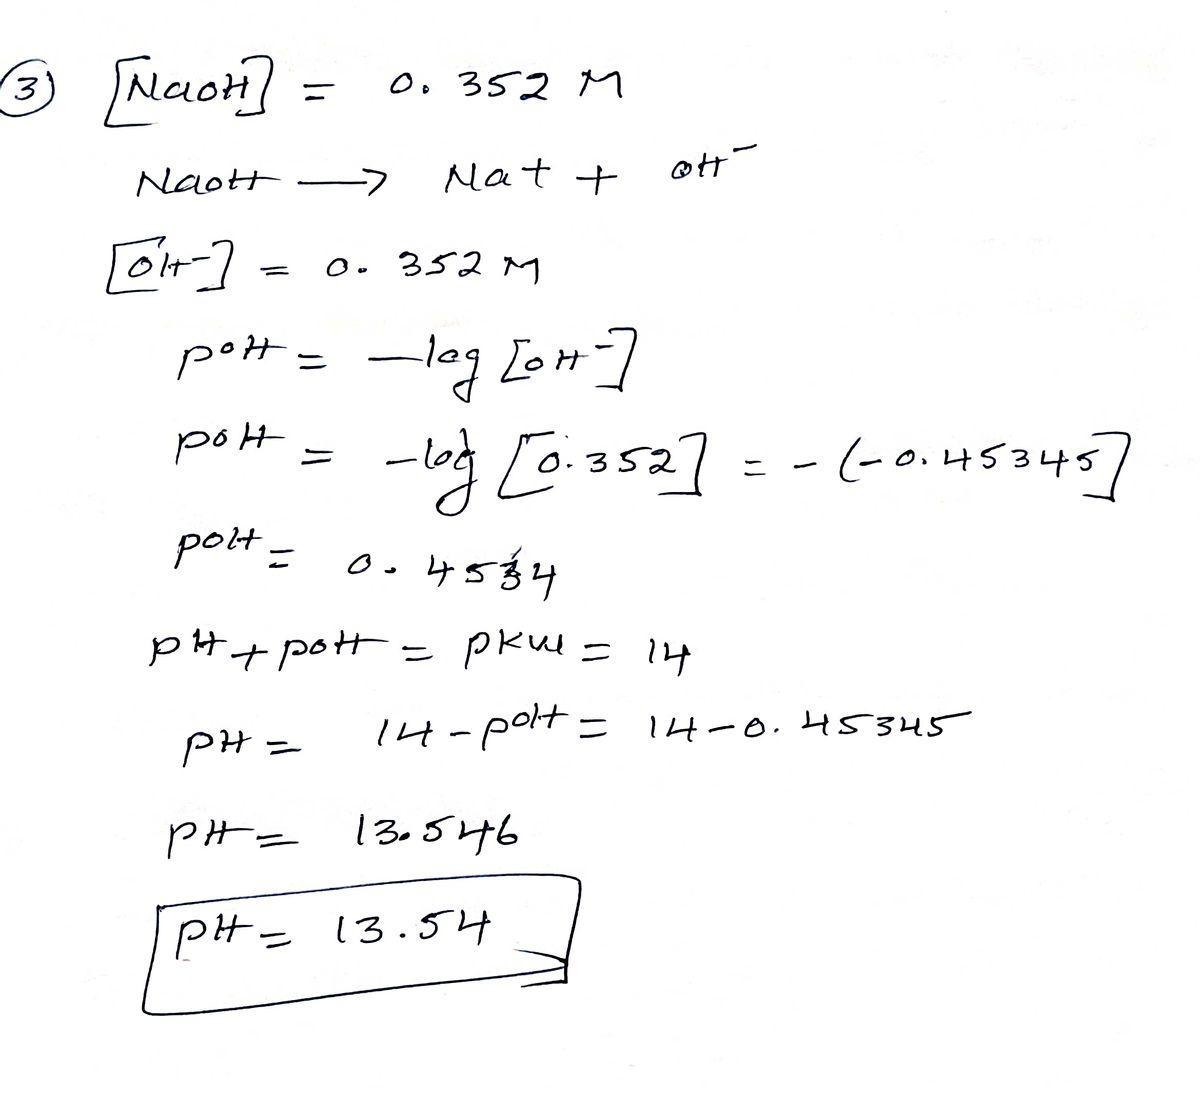 ③ [NaOH] = 0.352 M
NaOH → Na+ + OH⁻
[OH-] = 0.352 M
pOH = -log [OH-]
pOH = -log [0.352] = -(-0.45345]
pOH = 0.4534
pH + pOH = pKw = 14
pH = 14 - pOH = 14 - 0.45345
pH = 13.546
pH = 13.54